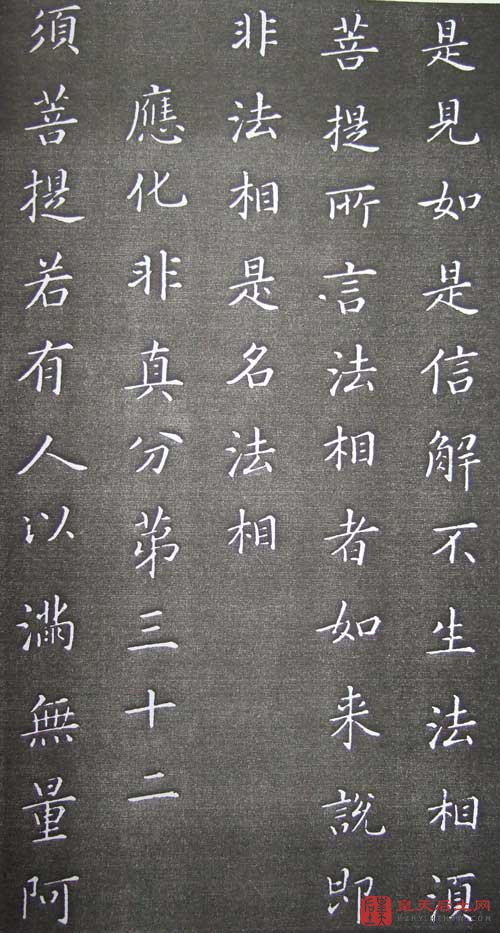 是見如是信解不生法相須
菩提所言法相者如来說即
非法相是名法相
應化非真分苐三十二
須菩提若有人以滿無量阿
皇天后土网